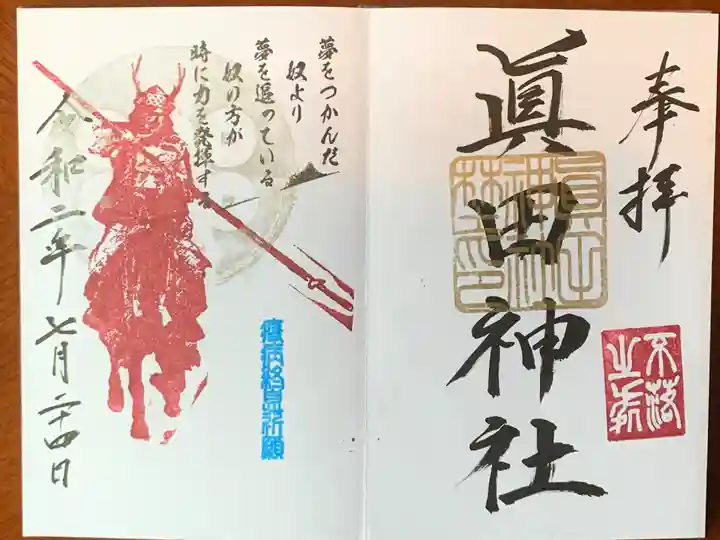 奉拝
眞田神社
眞田神社参拝之印
不落之城
夢をつかんだ
奴より
夢を追っている
奴の方が
時に力を発揮する
疫病終息祈願
令和二年七月二十四日